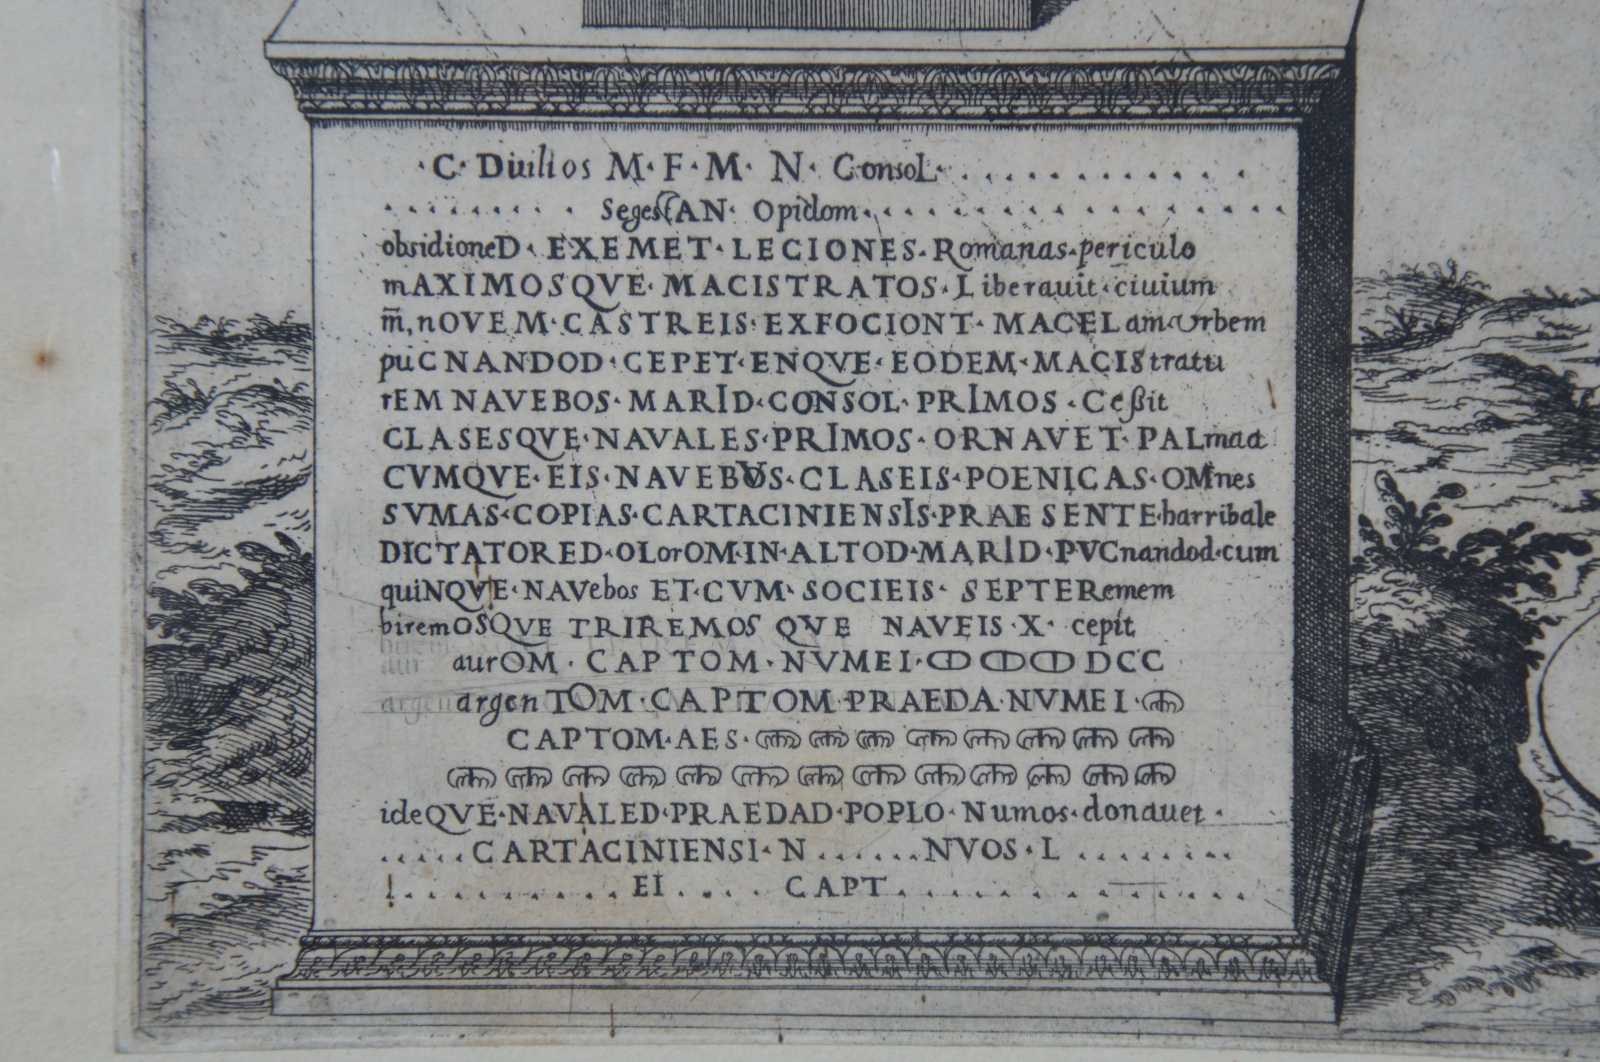 ·C· Diuilios M·F·M· N· ConsoL· . . . . . . . . . . . .
. . . . . . . . . SegesſAN· Opidom. . . . . . . . . . . . . . . . .
obsidioneD· EXEMET·LECIONES·Romanas·periculo
mAXIMOSQVE·MACISTRATOS·Liberauit·ciuium
m̄,nOVEM·CASTREIS·EXFOCIONT·MACELam urbem
puCNANDOD·CEPET·ENQVE·EODEM·MACIStratu
rEM NAVEBOS·MARID·CONSOL·PRIMOS·Ceßit
CLASESQVE·NAVALES·PRIMOS·ORNAVET·PALmaa
CVMQVE·EIS·NAVEBOS·CLASEIS·POENICAS·OMnes
SVMAS·COPIAS·CARTACINIENSIS·PRAESENTE·harribale
DICTATORED·OLorOM·IN·ALTOD·MARID·PVCnandod·cum
quiNQVE·NAVebos ET·CVM·SOCIEIS·SEPTERemem
biremOSQVE TRIREMOS QVE NAVEIS·X· cepit
aurOM·CAPTOM·NVMEI·ↀↀↀDCC
argenTOM·CAPTOM·PRAEDA·NVMEI·ↈ
CAPTOM·AES·ↈↈↈↈↈↈↈↈ
ↈↈↈↈↈↈↈↈↈↈↈↈↈ
ideQVE·NAVALED·PRAEDAD·POPLO·Numos·donauet·
. . . . . CARTACINIENSI·N . . . . . . NVOS·L . . . . . . . .
! . . . . . . . . . . . . EI . . . . . CAPT . . . . . . . . . . . . .